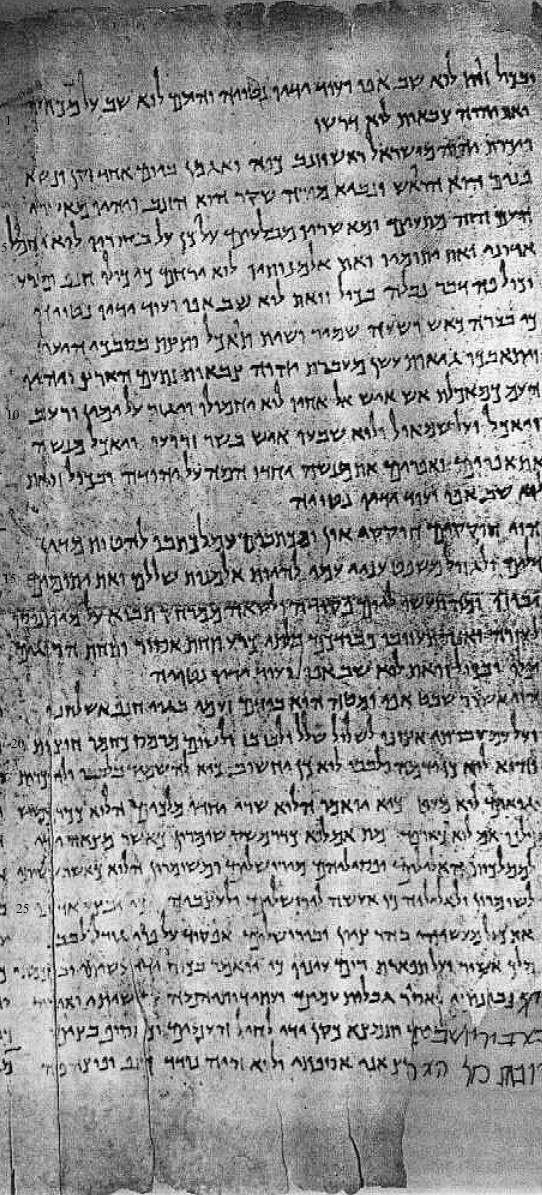 ובכול זות לוא שב אפו ועוד ידיו נטויה והעם לוא שב על מכהו
ואת יהוה צבאות לוא דרשו
ויכרת יהוה מישראל ראש וזנב כפה ואגמן ביום אחד זקן ונשוא
פנים הוא הראש ונביא מורה שקר הוא הזנב ויהיו מאשרי
העם הזה מתעים ומאשריו מבלעים על כן על בחוריו לוא יחמול
אדוני ואת יתומיו ואת אלמנותיו לוא ירחם כי כולו חנף ומרע
וכול פה דבר נבלה בכול זואת לוא שב אפו ועוד ידיו נטויה
כי בערה כאש רשעה שמיר ושית תאכל ותצת בסבכי היער
ויתאבכו גאות עשן מעברת יהוה צבאות נתעם הארץ ויהי
העם כמאכלת אש איש אל אחיו לוא יחמולו ויגזור על ימין ורעב
ויאכל ועל שמאול ולוא שבעו איש בשר זרועו יואכלו מנשה
את אפרים ואפרים את מנשה יחדו המה על יהודה בכול זואת
לוא שב אפו ועוד ידיו נטויה
הוי חוקקים חוקקי און ומכתבים עמל כתבו להטות מדין
דלים ולגזול משפט עניי עמי להיות אלמנות שללם ואת יתומים
יבוזו ומה תעשו ליום פקודה ולשואה ממרחק תבוא על מי תנוסו
לעזרה ואנה תעזובו כבודכם בלתי כרע תחת אסיר ותחת הרוגים
יפולו בכול זואת לוא שב אפו ועוד ידיו נטויה
הוי אשור שבט אפי ומטה הוא בידם זעמי בגוי חנף אשלחנו
ועל עם עברתי אצונו לשלול שלל ולבוז בז ולשומו מרמס כחמר חוצות
והוא לוא כן ידמה ולבבו לוא כן יחשוב כיא להשמיד בלבבו ולהכרית
גואים לוא מעט כיא יואמר הלוא שרי יחדו מלכים הלוא
כלנו אם לוא חמת אם לוא כדרמשק שומרון כאשר מצאה ידי
לממלכות האלילים ופסיליהם מירושלים ומשומרון הלוא כאשר עשיתי
לשומרון ולאליליה כן אעשה לירושלים ולעצביה יבצע אדוני
את כול מעשוהי בהר ציון ובירושלים אפקוד על פרי גודל לבב
מלך אשור ועל תפארת רום עיניו כי יואמר בכוח ידי עשיתי
כי נבונתי ואסיר גבולות עמים ועתידותיהמה שושיתי ואוריד
כאביר יושבים ותמצא כקן ידי לחיל העמים וכאסוף בצים
עזובות כול הארץ אני אספתי ולוא היה נודד כנף ופוצה פה